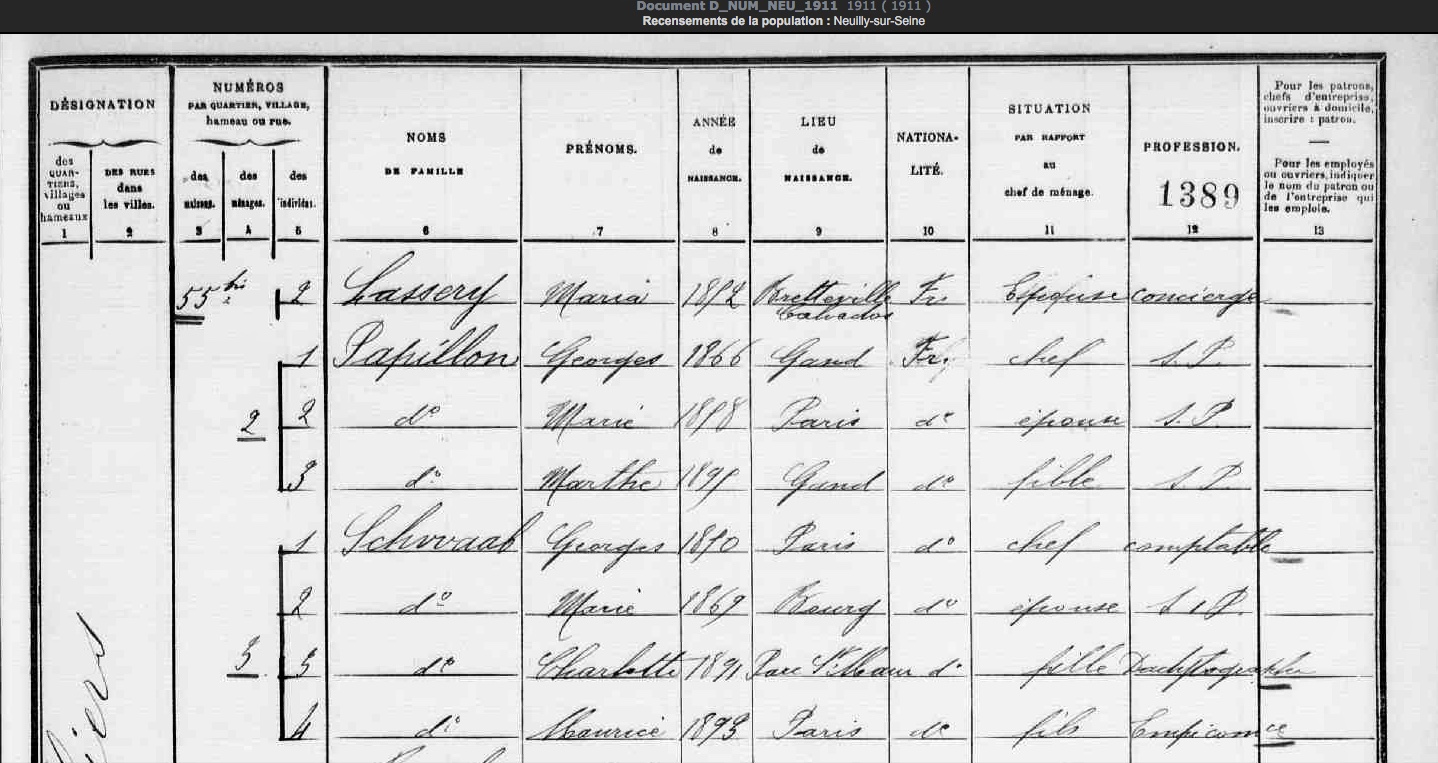 Document D_NUM_NEU_1911 1911 ( 1911 )
Recensements de la population : Neuilly-sur-Seine
DÉSIGNATION
des QUARTIERS, villages ou hameaux
1
DES RUES dans les villes.
2
NUMÉROS
PAR QUARTIER, VILLAGE,
hameau ou rue.
des maisons.
3
des ménages.
4
des individus.
5
NOMS
DE FAMILLE
6
PRÉNOMS.
7
ANNÉE
de
NAISSANCE.
8
LIEU
de
NAISSANCE.
9
NATIONA-
LITÉ.
10
SITUATION
PAR RAPPORT
au
chef de ménage.
11
PROFESSION.
1389
12
Pour les patrons,
chefs d'entreprise,
ouvriers à domicile,
inscrire : patron.
Pour les employés
ou ouvriers, indiquer
le nom du patron ou
de l'entreprise qui
les emploie.
13
55 bis 2 Lassery Maria Bretteville Calvados Fr. Epouse concierge
1 Papillon Georges 1866 Gand Fr. chef S. P.
2 2 do Marie Paris do épouse S. P.
3 do Marthe Gand do fille S P.
1 Schwaab Georges Paris do chef comptable
2 do Marie 1869 Bourg do épouse S. P.
3 3 do Charlotte 1891 Parc St Maur do fille Dactylographe
4 do Maurice 1893 Paris do fils